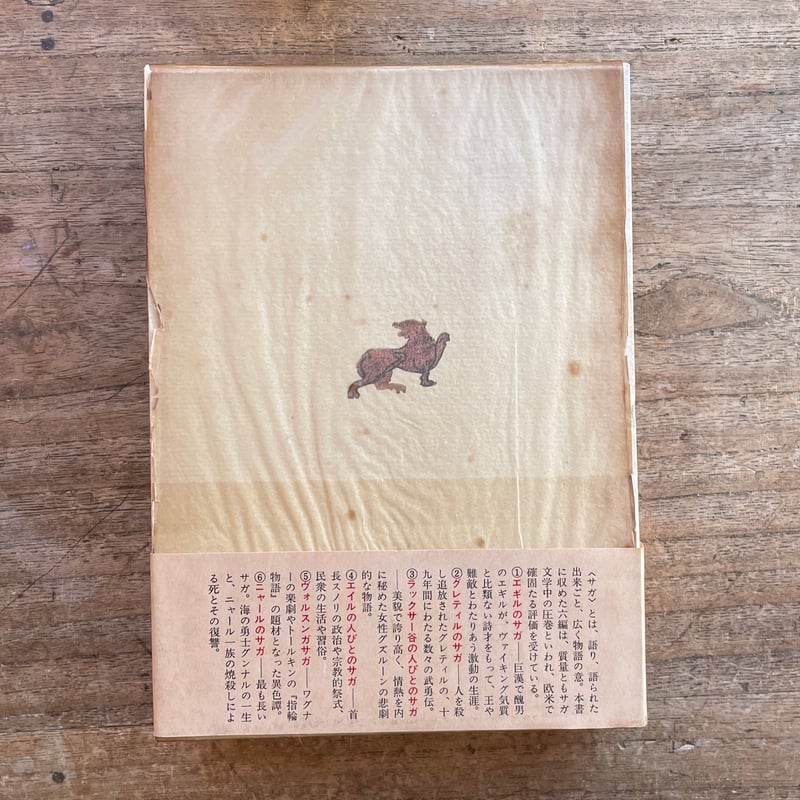 〈サガ〉とは、語り、語られた
出来ごと、広く物語の意。本書
に収めた六編は、質量ともサガ
文学中の圧巻といわれ、欧米で
確固たる評価を受けている。
①エギルのサガ――巨漢で醜男
のエギルが、ヴァイキング気質
と比類ない詩才をもって、王や
難敵とわたりあう激動の生涯。
②グレティルのサガ――人を殺
し追放されたグレティルの、十
九年間にわたる数々の武勇伝。
③ラックサー谷の人びとのサガ
――美貌で誇り高く、情熱を内
に秘めた女性グズルーンの悲劇
的な物語。
④エイルの人びとのサガ――首
長スノリの政治や宗教的祭式、
民衆の生活や習俗。
⑤ヴォルスンガサガ――ワグナ
ーの楽劇やトールキンの『指輪
物語』の題材となった異色譚。
⑥ニャールのサガ――最も長い
サガ。海の勇士グンナルの一生
と、ニャール一族の焼殺しによ
る死とその復讐。